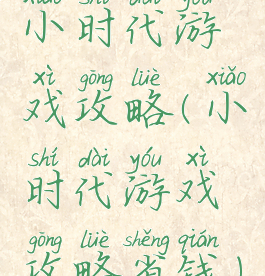 xiǎo shí dài yóu
小时代游
xì gōng lüè xiǎo
戏攻略(小
shí dài yóu xì
时代游戏
gōng lüè shěng qián
攻略省钱)